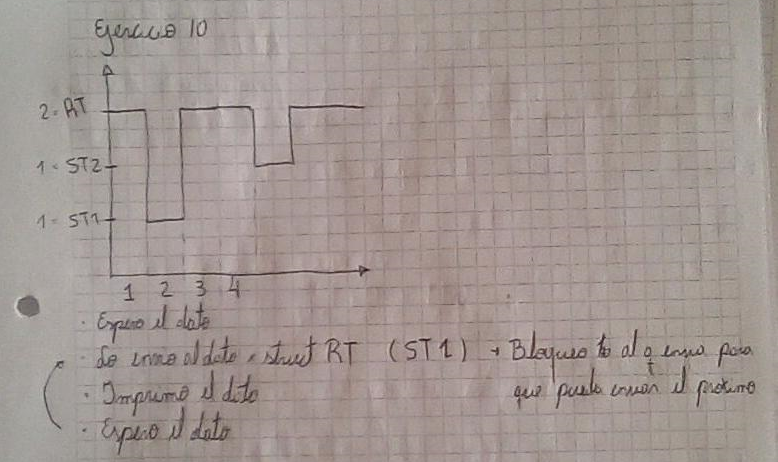 Ejercicio 10
2 - RT
1 - ST2
1 - ST1
1 2 3 4
· Espero el dato
· Se envio el dato struct RT (ST1) → Bloqueo al q envia para
que pueda enviar el proximo
· Imprimo el dato
· Espero el dato